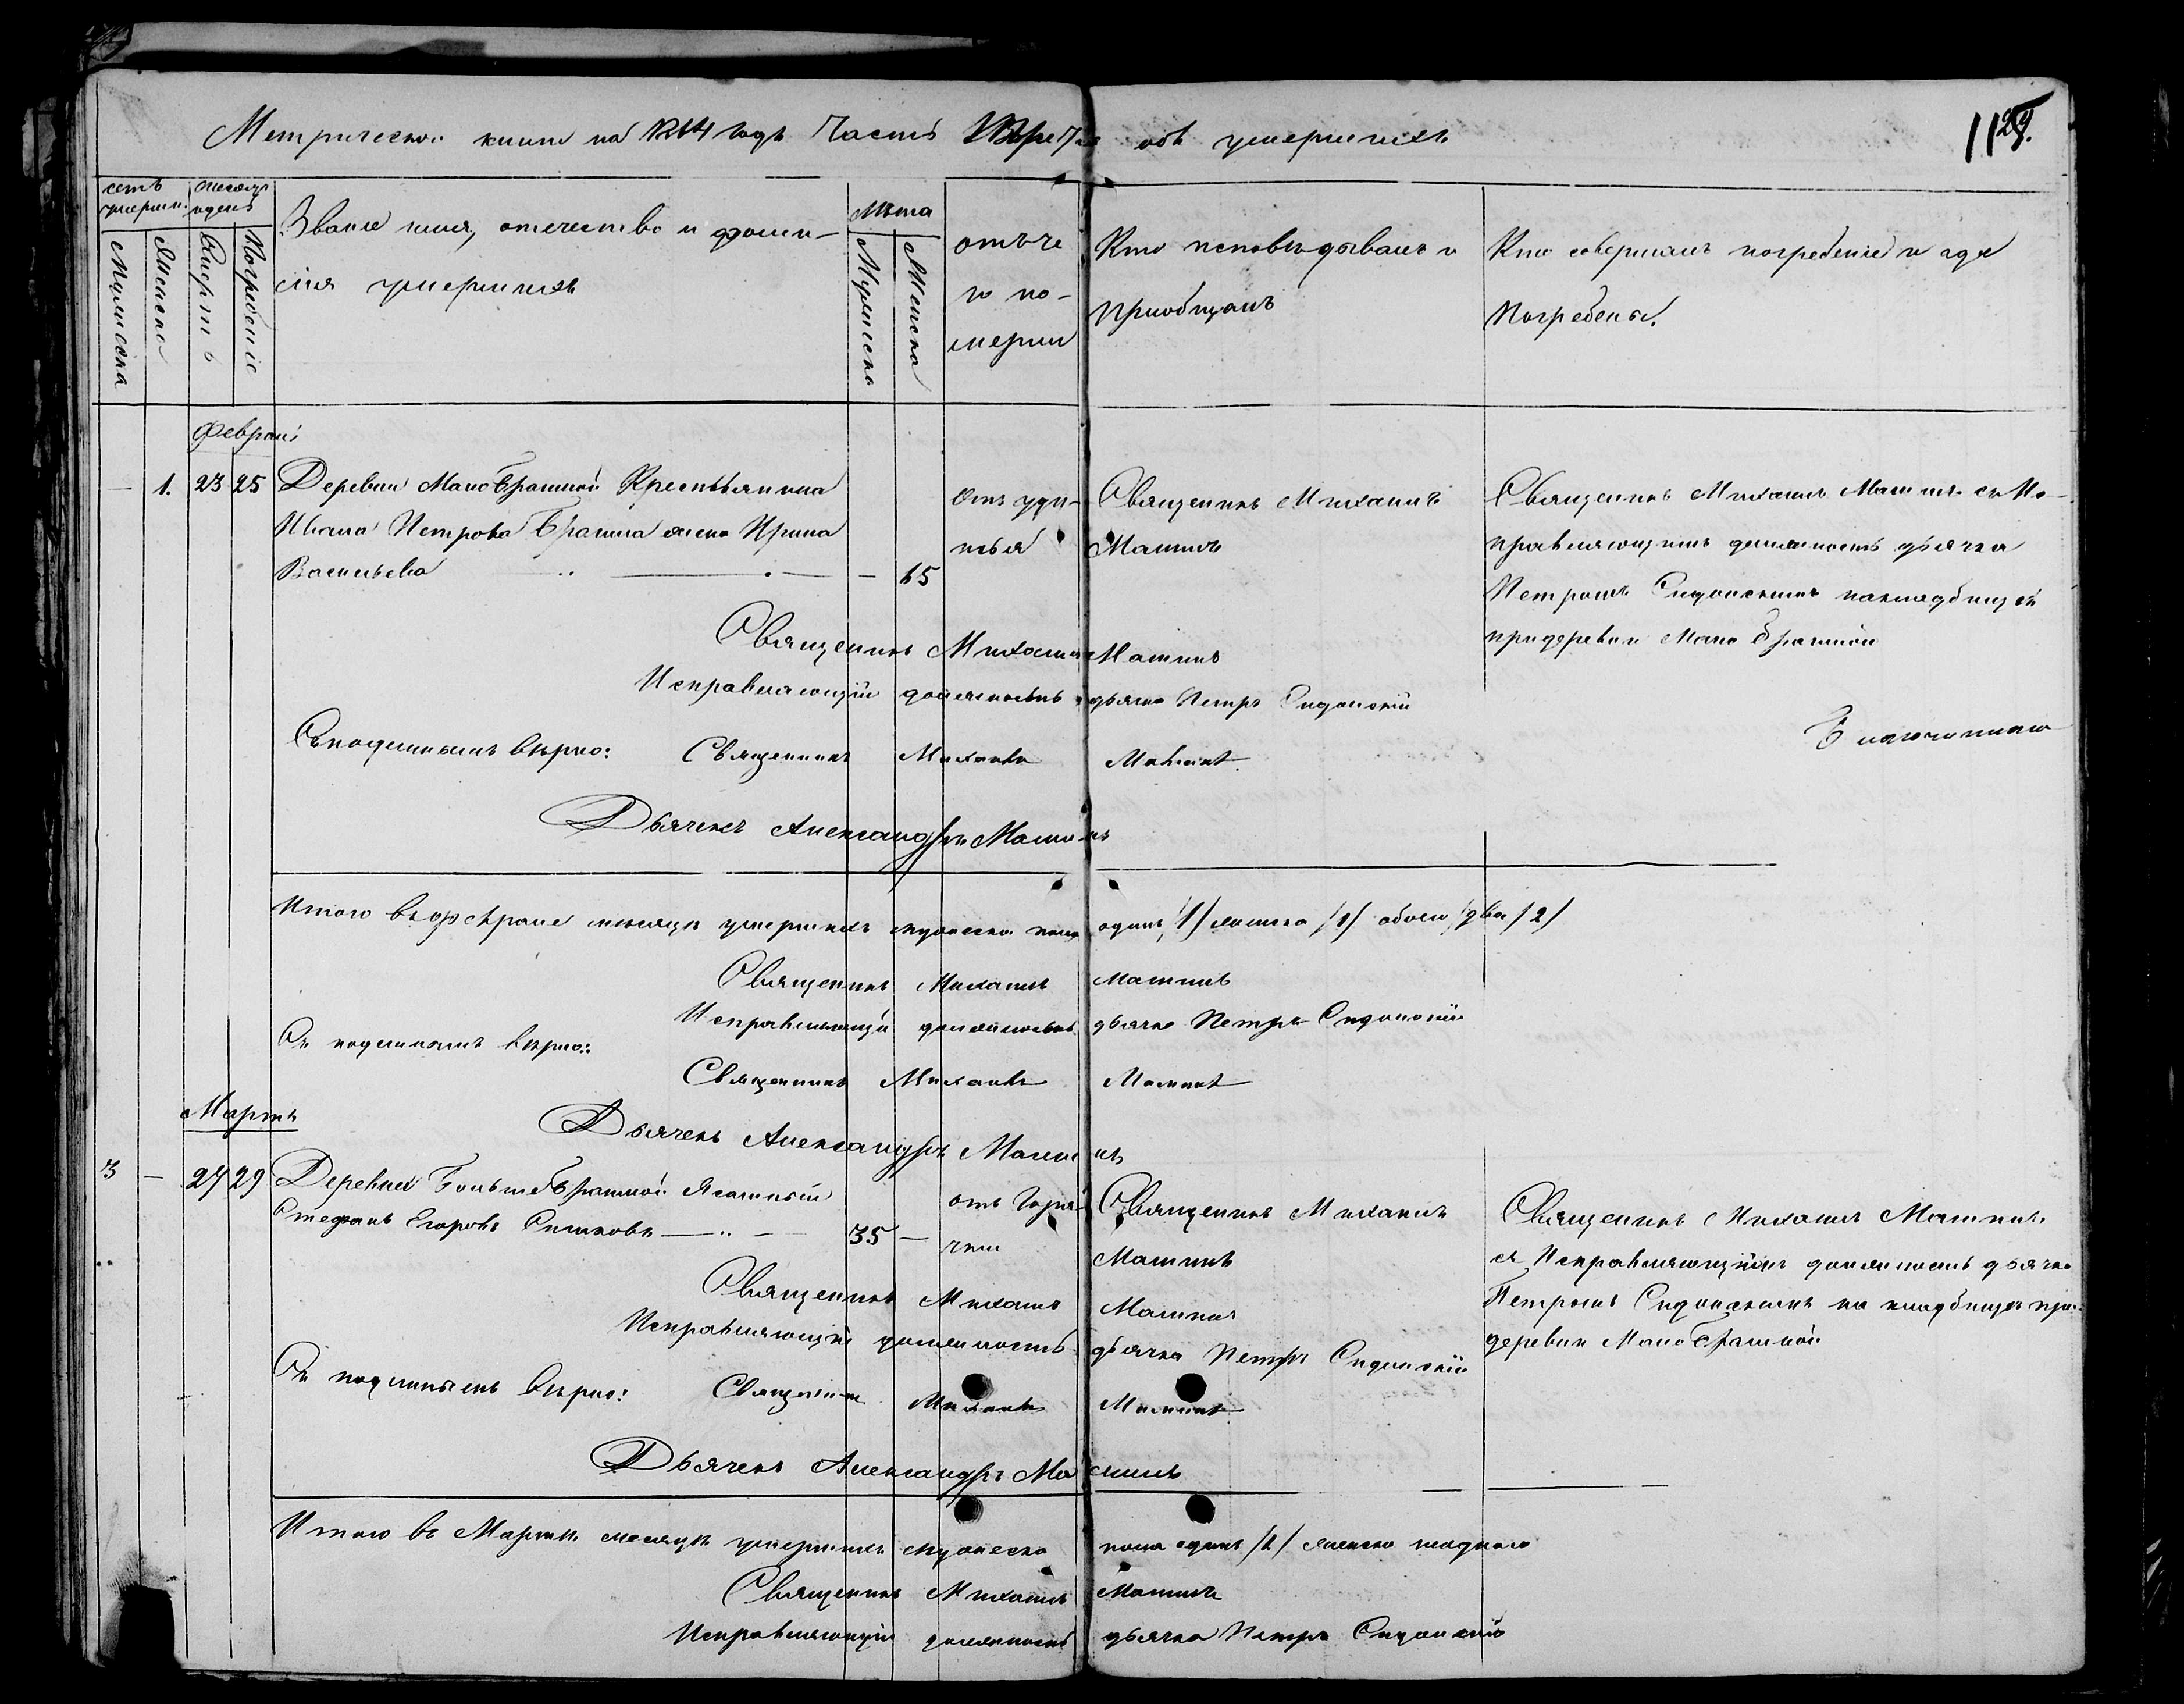 Метрической книги на 1864 годъ Часть Третья объ умершихъ
1129.
счетъ умерш.
Мѣсяцъ и день
Мужеска
Женска
Смерть
Погребеніе
Званіе имя, отечество и фами-
лія умершихъ
Лѣта
Мужеска
Женска
отъ че
го по-
мерши
Кто исповѣдывалъ и
приобщалъ
Кто совершалъ погребеніе и гдѣ
Погребены.
Февраль
— 1. 23 25 Деревни Мало Брашной Крестьянина
Ивана Петрова Брагина жена Ирина
Васильева — 65
отъ уду-
шья
Священникъ Михаилъ
Машинъ
Священникъ Михаилъ Машинъ съ Ис-
правляющимъ должность дьячка
Петромъ Сидонскимъ на кладбищѣ
при деревни Мало Брашной
Священникъ Михаилъ Машинъ
Исправляющій должность дьячка Петръ Сидонскій
Съ подлиннымъ вѣрно: Священникъ Михаилъ Машинъ
Дьячекъ Александръ Машинъ
Итого въ феврале мѣсяцѣ умершихъ мужеска пола одинъ /1/ женска /1/ обоего два /2/
Священникъ Михаилъ Машинъ
Исправляющій должность дьячка Петръ Сидонскій
Съ подлиннымъ вѣрно:
Священникъ Михаилъ Машинъ
Дьячекъ Александръ Машинъ
Мартъ
3 — 27 29 Деревни Больше Брашной Ясашный
Стефанъ Егоровъ — 35 —
отъ Горя
чки
Священникъ Михаилъ
Машинъ
Священникъ Михаилъ Машинъ
съ Исправляющимъ должность дьячка
Петромъ Сидонскимъ на кладбищѣ при
деревни Мало Брашной
Священникъ Михаилъ Машинъ
Исправляющій должность дьячка Петръ Сидонскій
Съ подлиннымъ вѣрно: Священникъ Михаилъ Машинъ
Дьячекъ Александръ Машинъ
Итого въ Мартѣ месяцѣ умершихъ мужеска пола одинъ /1/ женска неодного
Священникъ Михаилъ Машинъ
Исправляющій должность дьячка Петръ Сидонскій